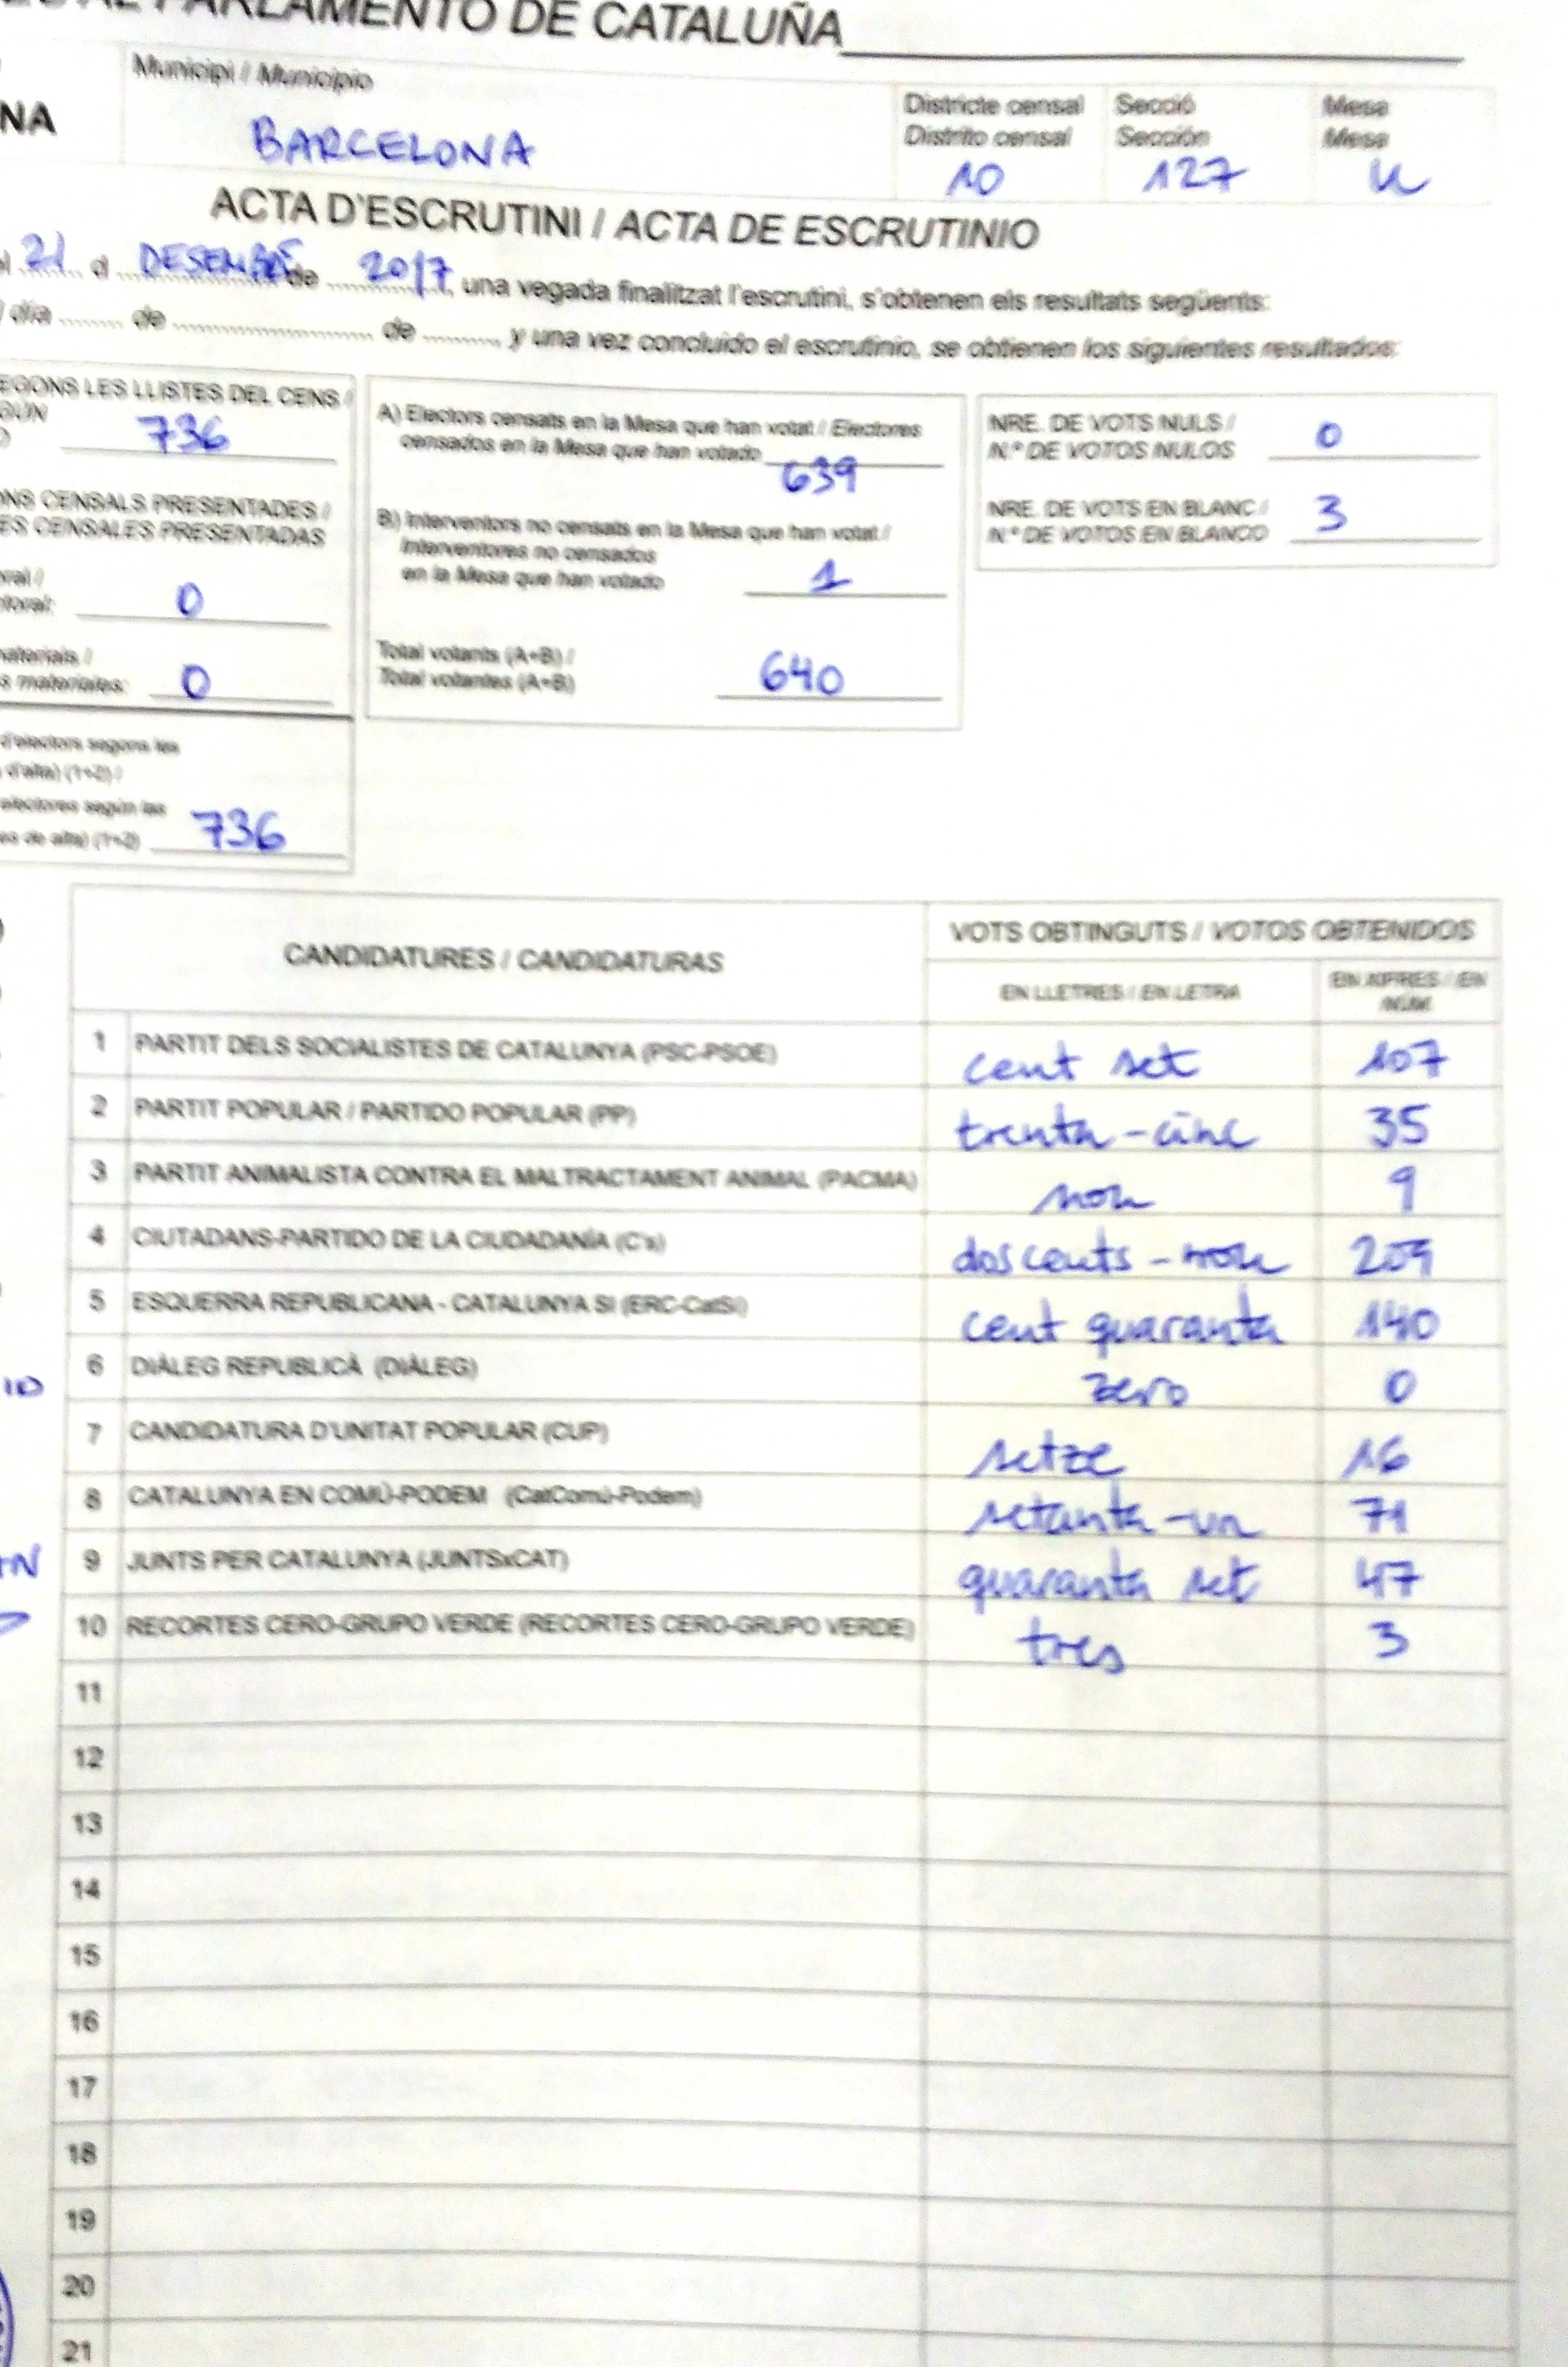 AL PARLAMENTO DE CATALUÑA
NA
Municipi / Municipio
BARCELONA
Districte censal
Distrito censal
10
Secció
Sección
127
Mesa
Mesa
U
ACTA D'ESCRUTINI / ACTA DE ESCRUTINIO
el 21 d DESEMBRE de 2017, una vegada finalitzat l'escrutini, s'obtenen els resultats següents:
día ........ de ........................ de ........., y una vez concluido el escrutinio, se obtienen los siguientes resultados:
EGONS LES LLISTES DEL CENS /
GÚN
736
ONS CENSALS PRESENTADES /
ES CENSALES PRESENTADAS
oral /
ctoral: 0
materials /
s materiales: 0
d'electors segons les
d'alta) (1+2) /
electores según las
as de alta) (1+2) 736
A) Electors censats en la Mesa que han votat / Electores
censados en la Mesa que han votado 639
B) Interventors no censats en la Mesa que han votat /
Interventores no censados
en la Mesa que han votado 1
Total votants (A+B) /
Total votantes (A+B) 640
NRE. DE VOTS NULS /
N.º DE VOTOS NULOS 0
NRE. DE VOTS EN BLANC /
N.º DE VOTOS EN BLANCO 3
CANDIDATURES / CANDIDATURAS
VOTS OBTINGUTS / VOTOS OBTENIDOS
EN LLETRES / EN LETRA
EN XIFRES / EN
NÚM.
1 PARTIT DELS SOCIALISTES DE CATALUNYA (PSC-PSOE) cent set 107
2 PARTIT POPULAR / PARTIDO POPULAR (PP) trenta-cinc 35
3 PARTIT ANIMALISTA CONTRA EL MALTRACTAMENT ANIMAL (PACMA) nou 9
4 CIUTADANS-PARTIDO DE LA CIUDADANÍA (C's) doscents-nou 209
5 ESQUERRA REPUBLICANA - CATALUNYA SI (ERC-CatSí) cent quaranta 140
6 DIÀLEG REPUBLICÀ (DIÀLEG) zero 0
7 CANDIDATURA D'UNITAT POPULAR (CUP) setze 16
8 CATALUNYA EN COMÚ-PODEM (CatComú-Podem) setanta-un 71
9 JUNTS PER CATALUNYA (JUNTSxCAT) quaranta set 47
10 RECORTES CERO-GRUPO VERDE (RECORTES CERO-GRUPO VERDE) tres 3
11
12
13
14
15
16
17
18
19
20
21